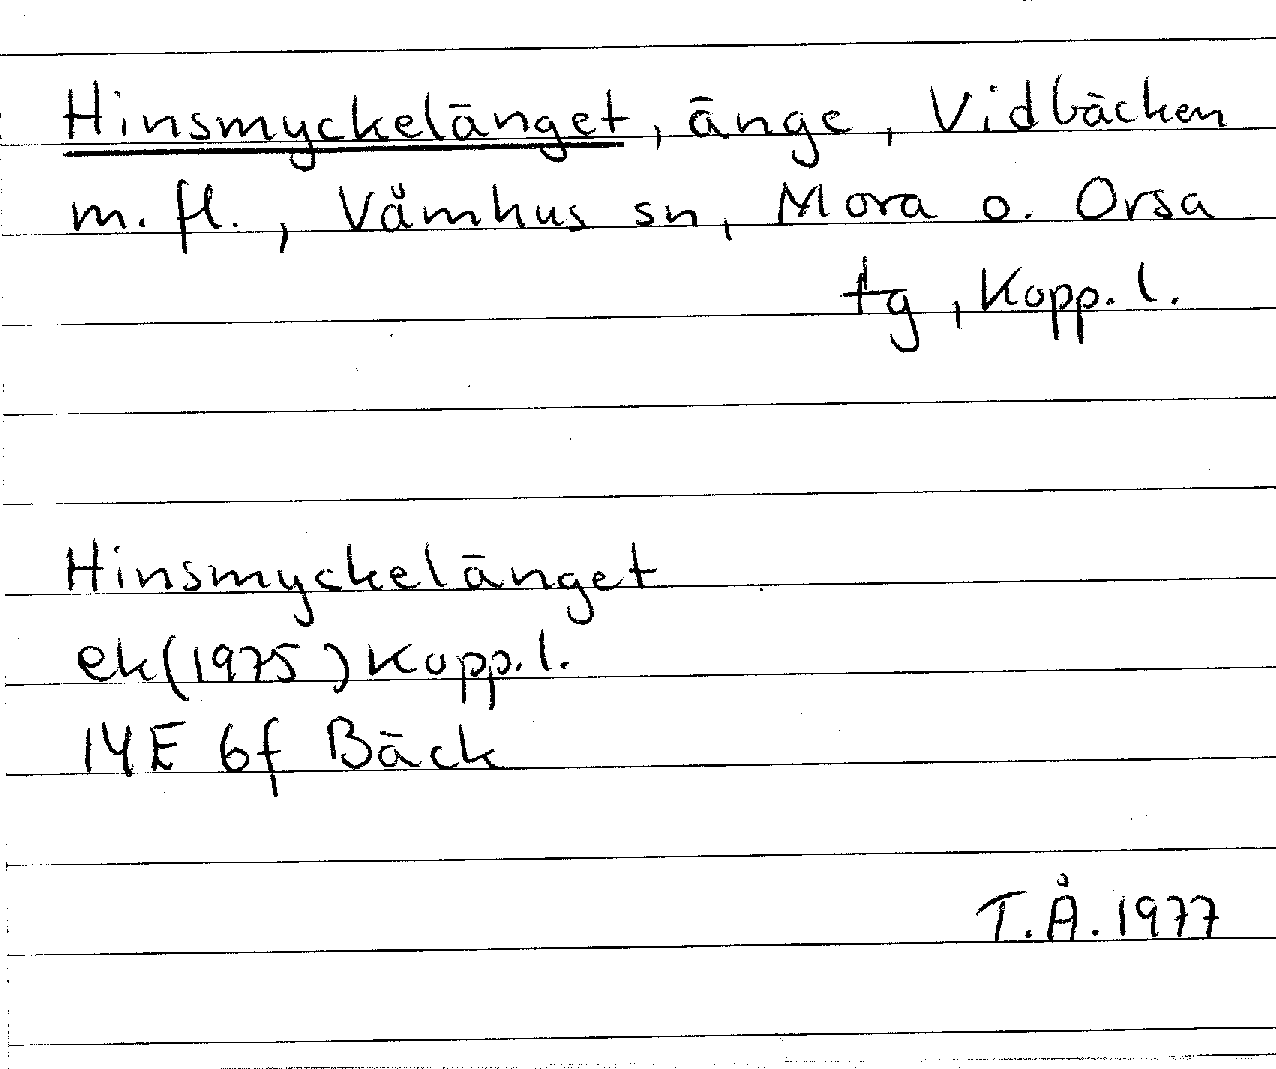 Hinsmyckelänget, änge, Vidbäcken
m. fl., Våmhus sn, Mora o. Orsa
tg, Kopp. l.
Hinsmyckelänget
ek(1975) Kopp. l.
14E 6f Bäck
T.Å. 1977